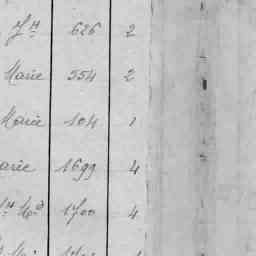 Jh 626 2
Marie 554 2
Marie 104 1
arie 1699 4
1700 4